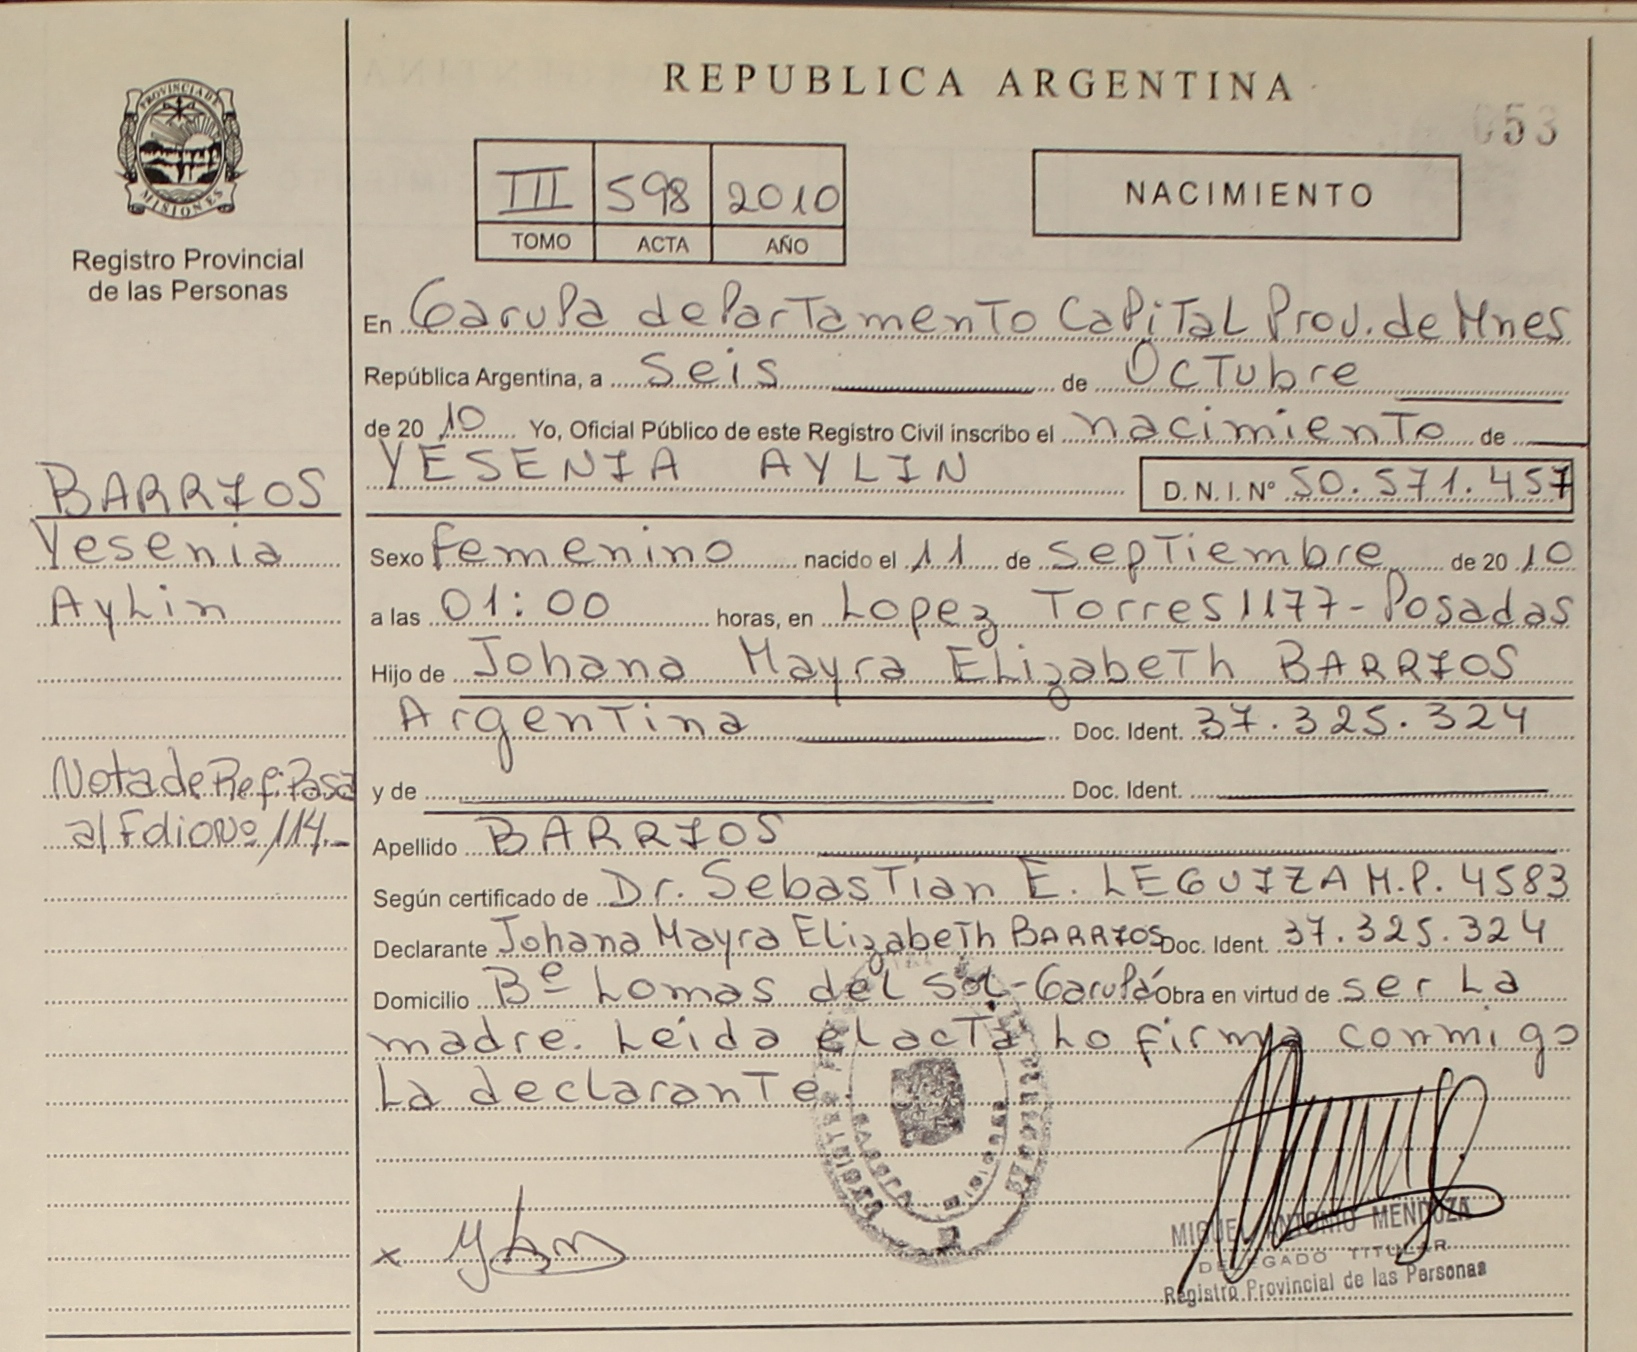 REPUBLICA ARGENTINA
053
PROVINCIA DE
MISIONES
Registro Provincial
de las Personas
III 598 2010
TOMO ACTA AÑO
NACIMIENTO
En Garupa departamento Capital Prov. de Mnes
República Argentina, a seis de Octubre
de 20 10 Yo, Oficial Público de este Registro Civil inscribo el nacimiento de
YESENIA AYLIN D. N. I. Nº 50.571.457
BARRIOS
Yesenia
Aylin
Sexo femenino nacido el 11 de septiembre de 20 10
a las 01:00 horas, en Lopez Torres 1177 - Posadas
Hijo de Johana Mayra Elizabeth BARRIOS
Argentina Doc. Ident. 37.325.324
Nota de Ref: Pasa
al Folio Nº 114.-
y de Doc. Ident.
Apellido BARRIOS
Según certificado de Dr. Sebastian E. LEGUIZA M.P. 4583
Declarante Johana Mayra Elizabeth BARRIOS Doc. Ident. 37.325.324
Domicilio Bº Lomas del Sol - Garupá Obra en virtud de ser La
madre. Leida el acta Lo firma conmigo
La declarante.
MIGUEL ANTONIO MENDOZA
DELEGADO TITULAR
Registro Provincial de las Personas